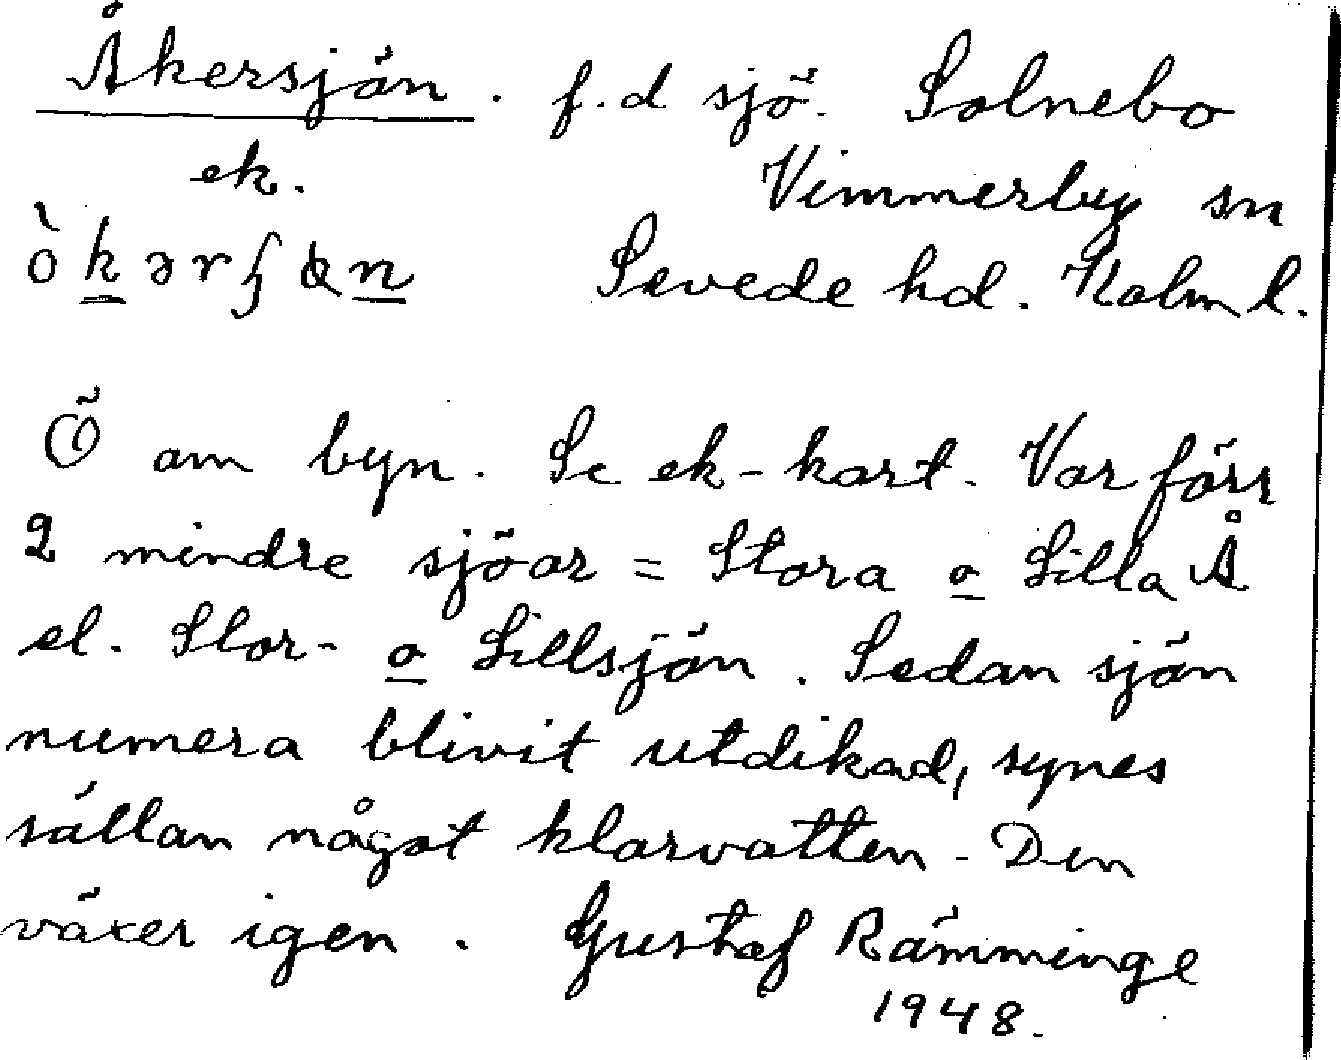 Åkersjön. f.d sjö. Solnebo
ek. Vimmerby sn
òkərʃɷn Sevede hd. Kalm l.
Ö om byn. Se ek-kart. Var förr
2 mindre sjöar = Stora o Lilla Å
el. Stor- o Lillsjön. Sedan sjön
numera blivit utdikad, synes
sällan något klarvatten - Den
växer igen. Gustaf Rämminge
1948.